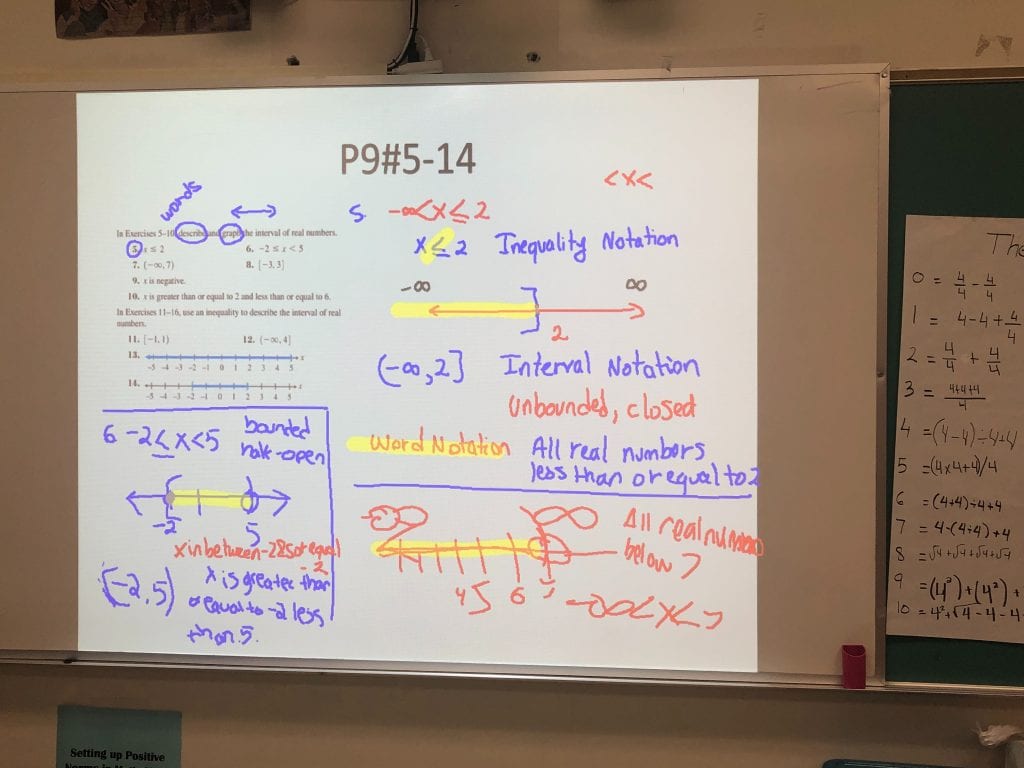 P9#5-14
<x<
words
In Exercises 5–10, describe and graph the interval of real numbers.
5. x ≤ 2
6. -2 ≤ x < 5
7. (-∞, 7)
8. [-3, 3]
9. x is negative.
10. x is greater than or equal to 2 and less than or equal to 6.
In Exercises 11–16, use an inequality to describe the interval of real
numbers.
11. [-1, 1)
12. (-∞, 4]
13.
-5 -4 -3 -2 -1 0 1 2 3 4 5 x
14.
-5 -4 -3 -2 -1 0 1 2 3 4 5 x
5. -∞<x≤2
x≤2 Inequality Notation
-∞ ∞
2
(-∞,2] Interval Notation
Unbounded, closed
Word Notation All real numbers
less than or equal to 2
6 -2≤x<5 bounded
half-open
-2 5
x in between -2&5 or equal
-2
[-2,5) x is greater than
or equal to -2 less
than 5.
-∞ ∞
4 5 6 7
All real numbers
below 7
-∞<x<7
The
0 = 4/4 - 4/4
1 = 4-4+4/4
2 = 4/4 + 4/4
3 = 4+4+4/4
4 =(4-4)÷4+4
5 =(4x4+4)/4
6 =(4+4)÷4+4
7 = 4-(4÷4)+4
8 = √4+√4+√4+√4
9 =(4²)+(4²)+
10 = 4²+√4-4-4
Setting up Positive